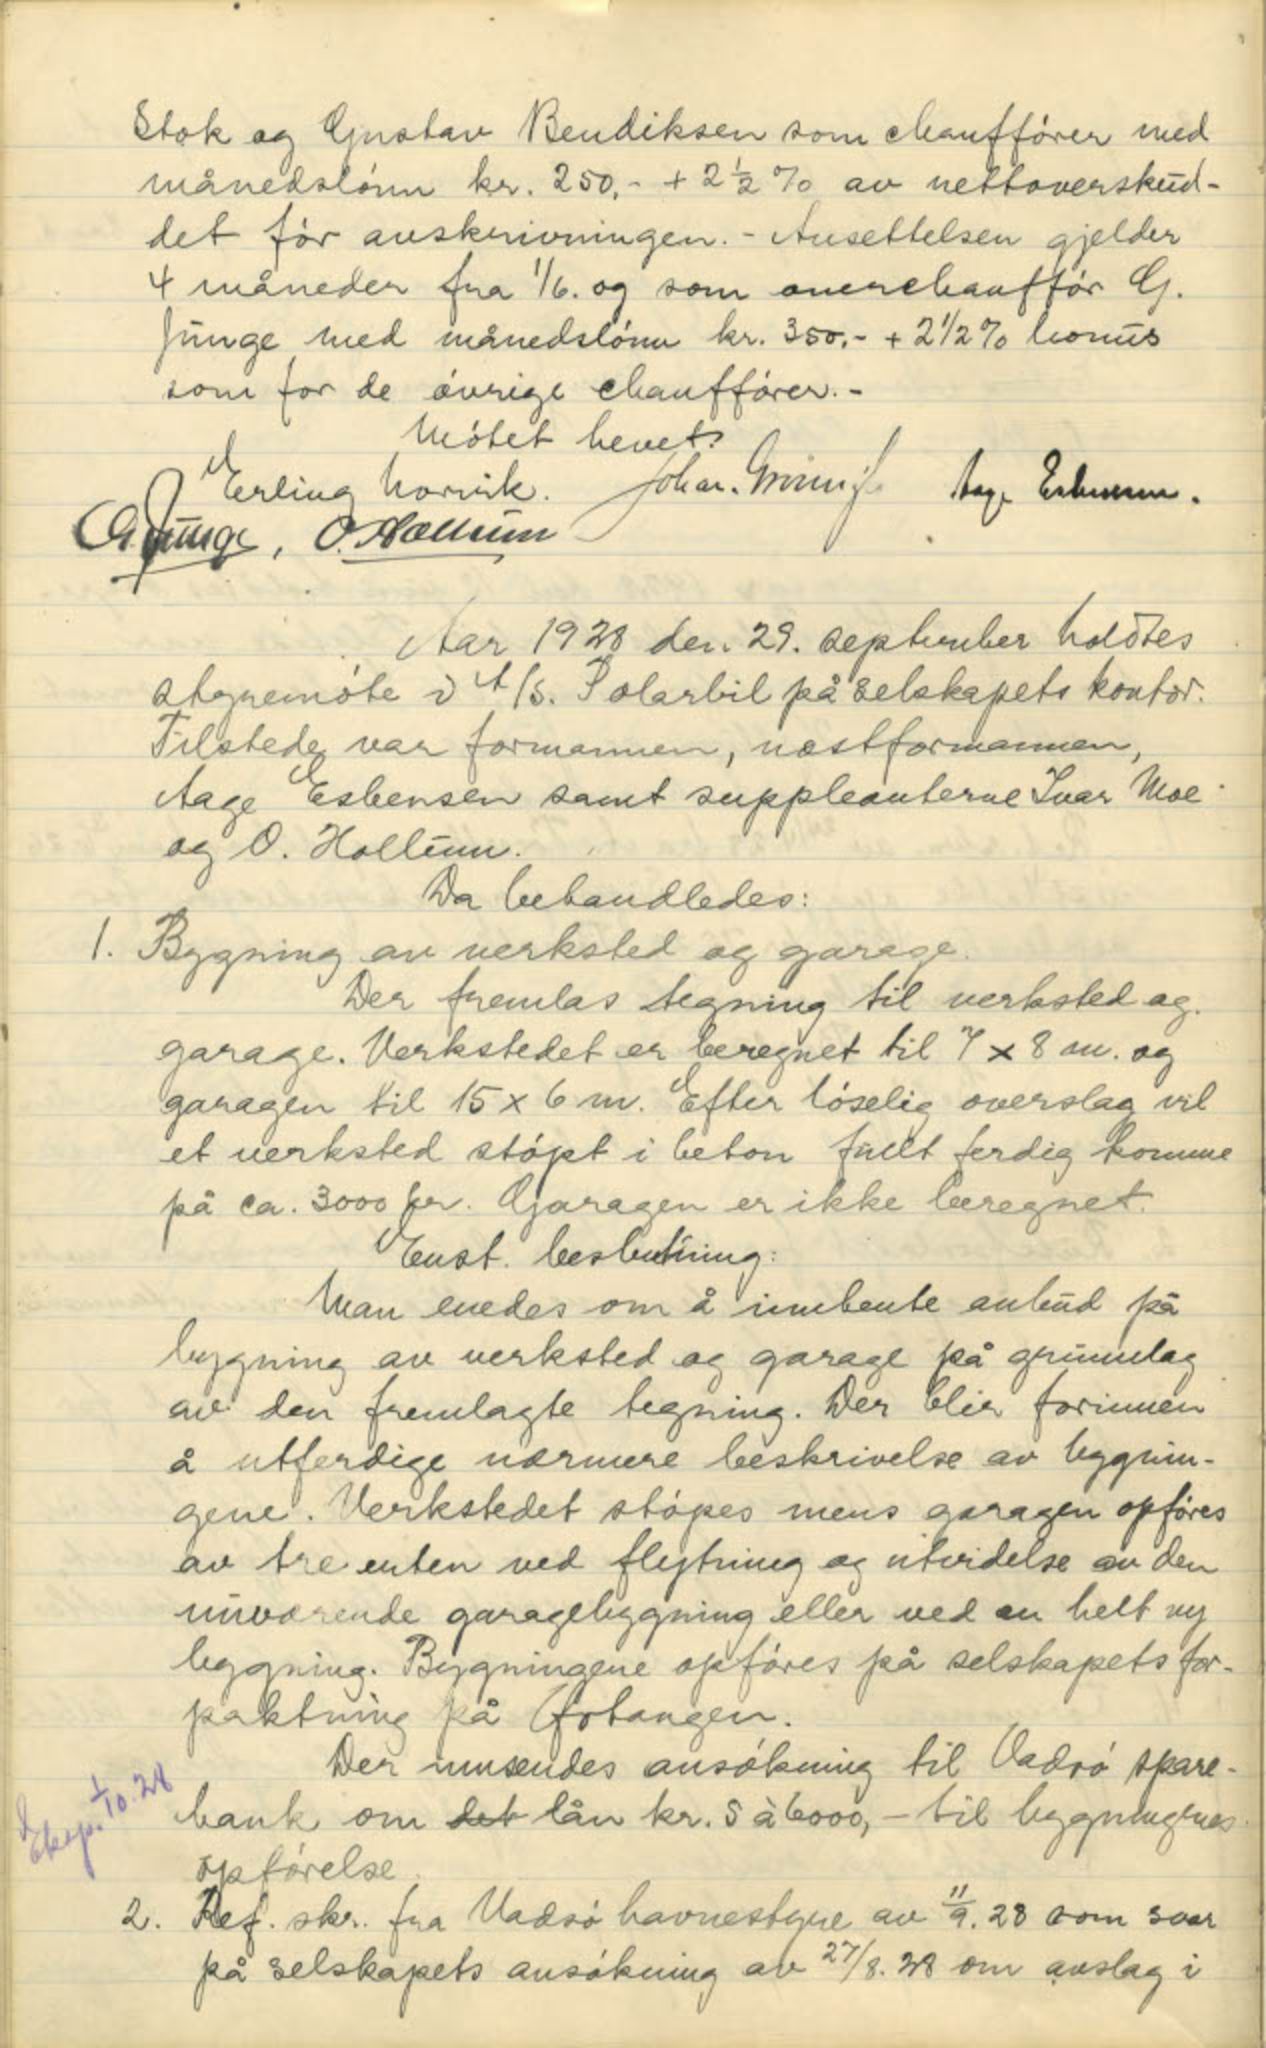 Stok og Gustav Bendiksen som chauffører med
månedslønn kr. 250,- + 2 1/2 % av nettooverskud-
det før avskrivningen. - Ansettelsen gjelder
4 måneder fra 1/6. og som overchauffør G.
Junge med månedslønn kr. 350.- + 2 1/2 % bonus
som for de øvrige chauffører. -
Møtet hevet.
Erling Norvik. Johan. Aage Esbensen.
G. Junge, O. Hollum
Aar 1928 den 29. september holdtes
styremøte i A/S. Polarbil på selskapets kontor.
Tilstede var formannen, næstformannen,
Aage Esbensen samt suppleanterne Ivar Moe
og O. Hollum.
Da behandledes:
1. Bygning av verksted og garage.
Der fremlas tegning til verksted og
garage. Verkstedet er beregnet til 7 x 8 m. og
garagen til 15 x 6 m. Efter løselig overslag vil
et verksted støpt i beton fullt ferdig komme
på ca. 3000 kr. Garagen er ikke beregnet.
Enst. beslutning:
Man enedes om å innhente anbud på
bygning av verksted og garage på grunnlag
av den fremlagte tegning. Der blir forinnen
å utferdige nærmere beskrivelse av bygnin-
gene. Verkstedet støpes mens garagen opføres
av tre enten ved flytning og utvidelse av den
nuværende garagebygning eller ved en helt ny
bygning. Bygningene opføres på selskapets for-
paktning på Ørtangen.
Der innsendes ansøkning til Vadsø spare-
bank om det lån kr. 5 à 6000,- til bygningenes
opførelse.
Eksp. 1/10.28
2. Ref. skr. fra Vadsø havnestyre av 11/9.28 som svar
på selskapets ansøkning av 27/8.28 om avslag i